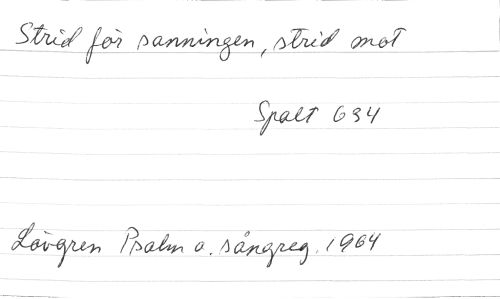 Strid för sanningen, strid mot
Spalt 634
Lövgren Psalm o. sångreg. 1964